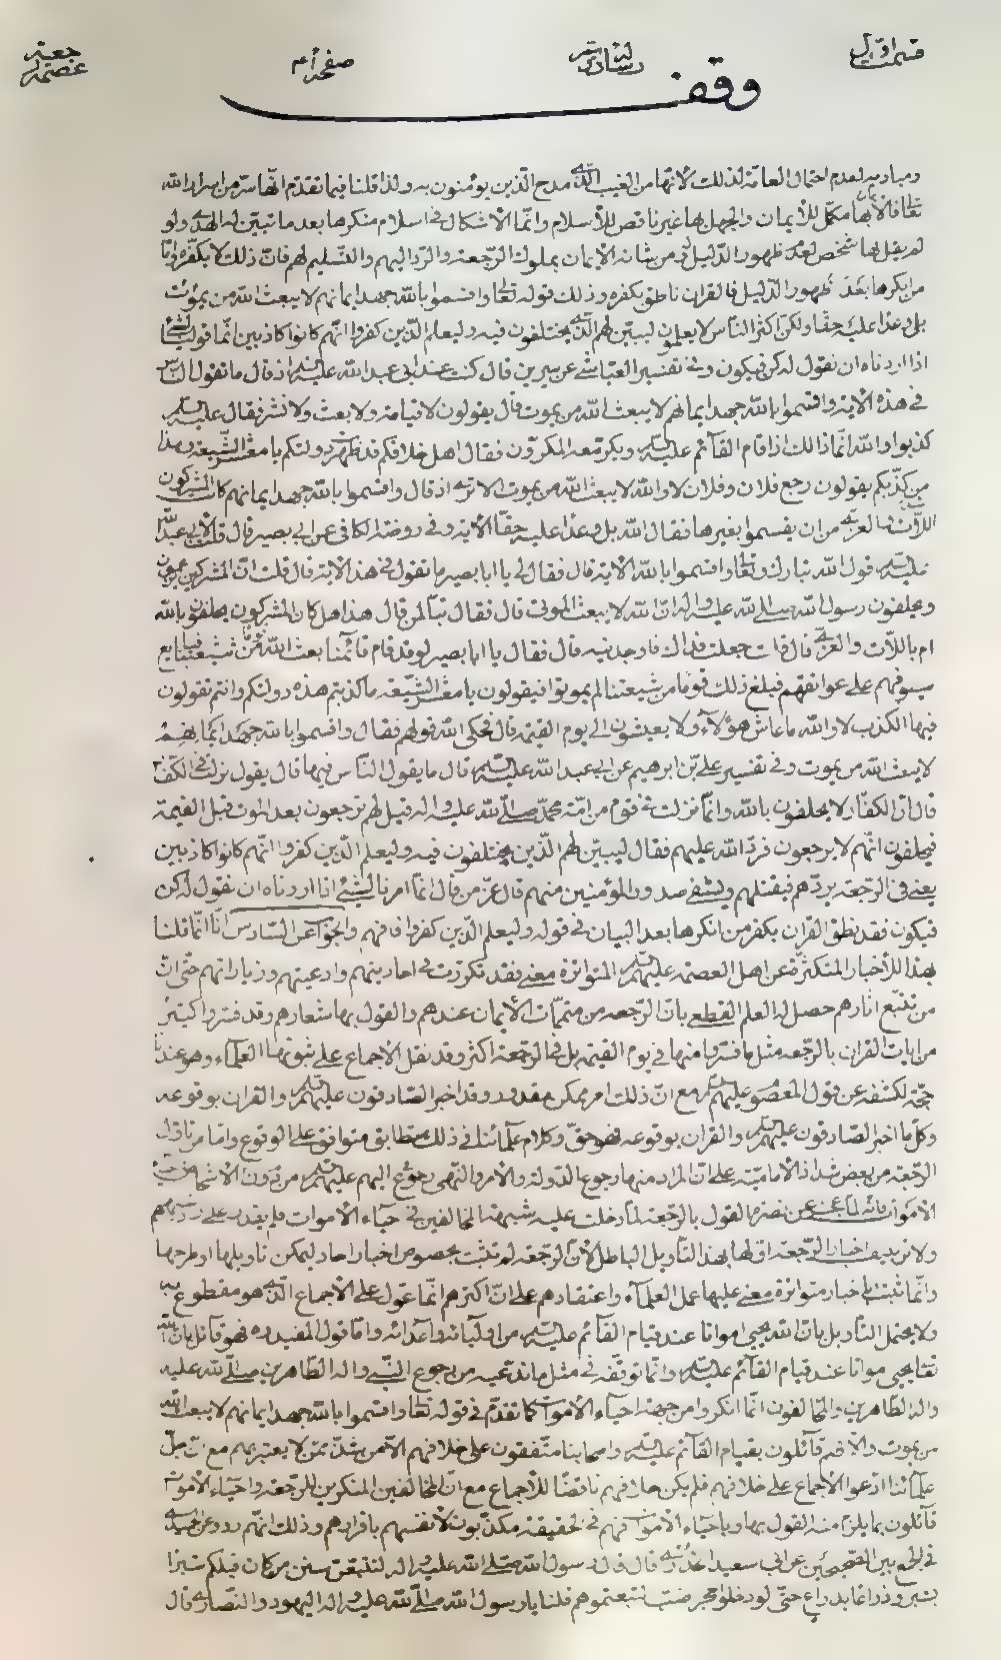 قسمت اول
رسالة سادسة
صفحه
رجعة عصمة
وقف
ومباديه لعدم احتمال العامّة لذلك لانها من الغيب الّذى مدح الّذين يؤمنون به ولذا قلنا فيما تقدّم انّها سرّ من اسرار الله
تعالى فالايمان بها مكمّل للأيمان والجهل بها غير ناقص للأسلام وانّما الاشكال فى اسلام منكرها بعد ما تبيّن له الهدى ولو
لم يقل بها شخص لعدم ظهور الدّليل له من شانه الايمان بملوك الرّجعة والردّ اليهم والتّسليم لهم فانّ ذلك لا يكفّره وامّا
من انكرها بعد ظهور الدّليل فالقران ناطق بكفره وذلك قوله تعالى واقسموا بالله جهد ايمانهم لا يبعث الله من يموت
بلى وعدا عليه حقّا ولكن اكثر النّاس لا يعلمون ليبيّن لهم الّذى يختلفون فيه وليعلم الّذين كفروا انّهم كانوا كاذبين انّما قولنا لشئ
اذا اردناه ان نقول له كن فيكون وفى تفسير العيّاشى عن سيرين قال كنت عند ابى عبد الله عليه السلام اذ قال ما تقول النّاس
فى هذه الاية واقسموا بالله جهد ايمانهم لا يبعث الله من يموت قال يقولون لا قيامة ولا بعث ولا نشر فقال عليه السلام
كذبوا والله انّما ذالك اذا قام القائم عليه السلام ويكرّ معه المكرّون فقال اهل خلافكم قد ظهرت دولتكم يا معشر الشّيعة وهذا
من كذبكم يقولون رجع فلان وفلان لا والله لا يبعث الله من يموت الا ترى اذ قال واقسموا بالله جهد ايمانهم كانت المشركون
اللاّت والعزّى من ان يقسموا بغيرها فقال الله بلى وعدا عليه حقّا الاية وفى روضة الكافى عن ابى بصير قال قلت لابى عبد الله
عليه السلام قول الله تبارك وتعالى واقسموا بالله الاية قال فقال لى يا ابا بصير ما تقول فى هذا الاية قال قلت انّ المشركين يزعمون
ويحلفون رسول الله صلى الله عليه واله انّ الله لا يبعث الموتى قال فقال تبّا لمن قال هذا هل كان المشركون يحلفون بالله
ام باللاّت والعزّى قال قلت جعلت فداك فاوجدنيه قال فقال يا ابا بصير لو قد قام قائمنا بعث الله قوما من شيعتنا قبايع
سيوفهم على عواتقهم فيبلغ ذلك قوما من شيعتنا لم يموتوا فيقولون يا معشر الشّيعة ما كذبتم هذه دولتكم وانتم تقولون
فيها الكذب لا والله ما عاش هؤلاء ولا يعيشون الى يوم القيمة قال فحكى الله قولهم فقال واقسموا بالله جهد ايمانهم
لا يبعث الله من يموت وفى تفسير علىّ بن ابرهيم عن ابى عبد الله عليه السلام قال ما يقول النّاس فيها قال يقول نزلت فى الكفّار
قال انّ الكفّار لا يحلفون بالله وانّما نزلت فى قوم من امّة محمّد صلّى الله عليه واله قيل لهم ترجعون بعد الموت قبل القيمة
فيحلفون انّهم لا يرجعون فردّ الله عليهم فقال ليبيّن لهم الّذين يختلفون فيه وليعلم الّذين كفروا انّهم كانوا كاذبين
يعنى فى الرّجعة يردّهم فيقتلهم ويشفى صدور المؤمنين منهم قال عزّ من قال انّما امرنا لشئ اذا اردناه ان نقول له كن
فيكون فقد نطق القران بكفر من انكرها بعد البيان فى قوله وليعلم الّذين كفروا فافهم والجواب عن السّادس انّا انّما قلنا
بهذا للأخبار المتكثّرة عن اهل العصمة عليهم السلام المتواترة معنى فقد تكرّرت فى احاديثهم وادعيتهم وزياراتهم حتّى انّ
من تتبّع اثارهم حصل له العلم القطعى بانّ الرّجعة من متممّات الأيمان عندهم والقول بها شعارهم وقد فسّروا كثيرا
من ايات القران بالرّجعة مثل ما فسّروا منها فى يوم القيمة بل فى الرّجعة اكثر وقد نقل الاجماع على ثبوتها العلماء وهو عندنا
حجّة لكشفه عن قول المعصوم عليهم السلام مع انّ ذلك امر ممكن مقدور وقد اخبر الصّادقون عليهم السلام والقران بوقوعه
وكلّ ما اخبر الصّادقون عليهم السلام والقران بوقوعه فهو حقّ وكلام علمائنا فى ذلك متطابق متوافق على الوقوع وامّا من تاوّل
الرّجعة من بعض شذاذ الاماميّة على انّ المراد منها رجوع الدّولة والامر والنّهى رجوع اليهم عليهم السلام من دون الاشخاص
الاموات فانّه لمّا عجز عن نصرة القول بالرّجعة لمّا دخلت عليه شبهة المخالفين فى احياء الأموات فلم يقدر على ردّ
ولا تزييف اخبار الرّجعة اوّلها بهذا التّأويل الباطل لأنّ الرّجعة لم تثبت بخصوص اخبار احاد ليمكن تاويلها او طرحها
وانّما ثبت باخبار متواترة معنى عليها عمل العلماء واعتقادهم على انّ اكثرهم انّما عوّل على الأجماع الّذى هو مقطوع به
ولا يحتمل التّأويل بانّ الله يحيى امواتا عند قيام القائم عليه السلام من اوليائه واعدائه وامّا قول المفيد ره فهو قائل بانّ الله
تعالى يحيى مواتا عند قيام القائم عليه السلام وانّما توقّفه فى مثل ما ندّعيه من رجوع النّبى واله الطّاهرين صلّى الله عليه
واله الطّاهرين والمخالفون انّما انكروا من جهة احياء الأموات كما تقدّم فى قوله تعالى واقسموا بالله جهد ايمانهم لا يبعث الله
من يموت والاّ فهم قائلون بقيام القائم عليه السلام واصحابنا متّفقون على خلافهم الاّ من شذّ ممّن لا يعتبر بهم مع انّ جلّ
علمائنا ادّعوا الأجماع على خلافهم فلم يكن خلافهم ناقضا للأجماع مع انّ المخالفين المنكرين للرّجعة واحياء الأموات
قائلون بما يلزم منه القول بها وباحياء الأموات فهم فى الحقيقة مكذّبون لأنفسهم باقرارهم وذلك انّهم رووا عن الحميدى
فى الجمع بين الصّحيحين عن ابى سعيد الخدرى قال قال رسول الله صلى الله عليه واله لتتّبعنّ سنن من كان قبلكم شبرا
بشبر وذراعا بذراع حتّى لو دخلوا جحر ضبّ لتبعتموهم قلنا يا رسول الله صلّى الله عليه واله اليهود والنّصارى قال